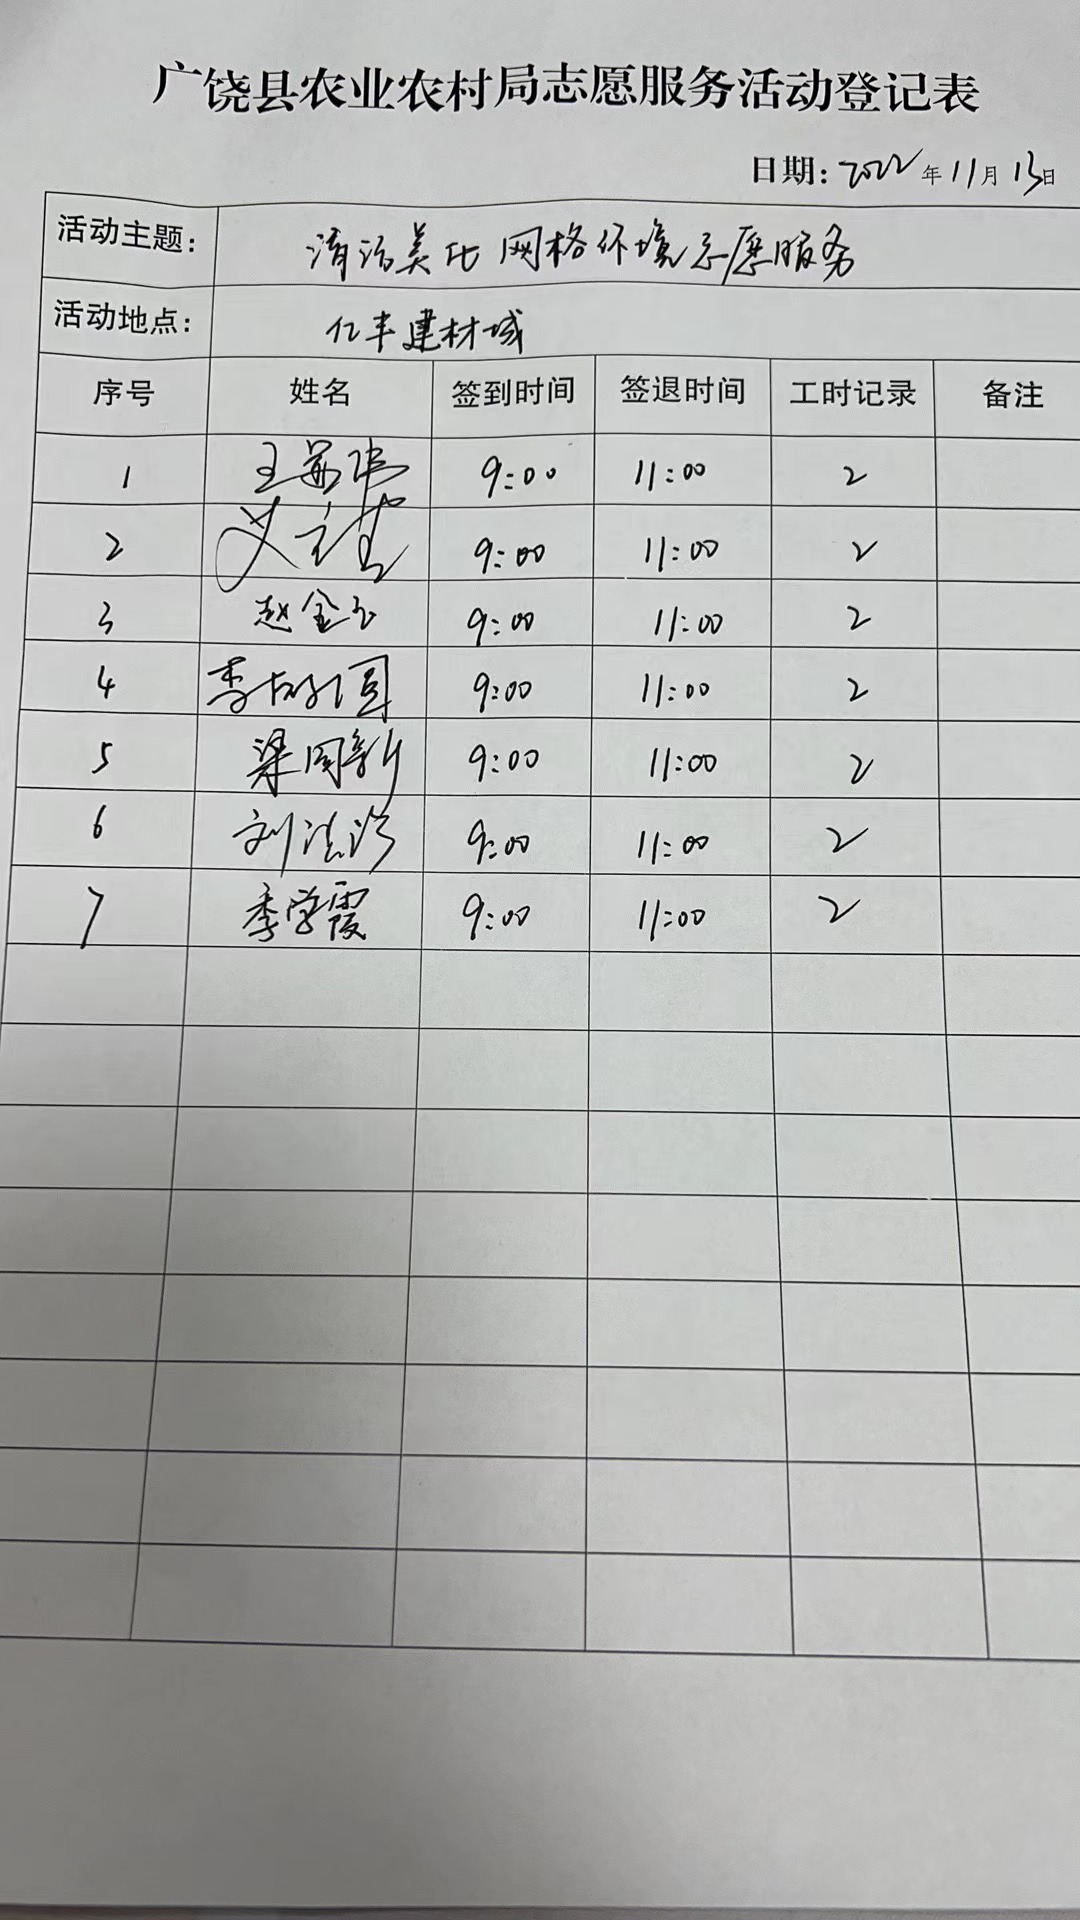 广饶县农业农村局志愿服务活动登记表
日期: 2022年11月13日
活动主题: 清洁美化网格环境志愿服务
活动地点: 亿丰建材城
序号 姓名 签到时间 签退时间 工时记录 备注
1 9:00 11:00 2
2 9:00 11:00 2
3 赵金玉 9:00 11:00 2
4 9:00 11:00 2
5 梁国新 9:00 11:00 2
6 刘 9:00 11:00 2
7 季学霞 9:00 11:00 2